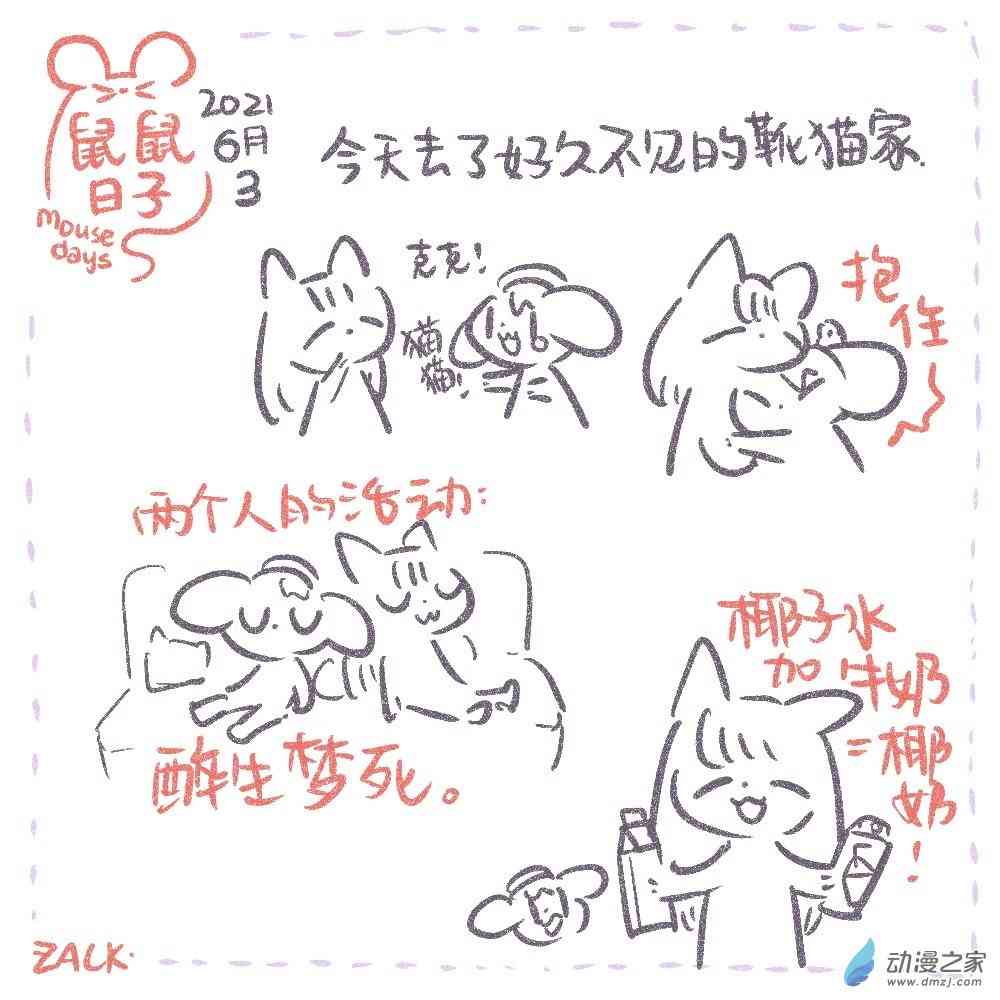 鼠鼠
日子
mouse
days
2021
6月
3
今天去了好久不见的靴猫家.
克克!
猫
猫!
抱
住
两个人的活动:
醉生梦死。
椰子水
加牛奶
=椰
奶
!
ZALK.
动漫之家
www.dmzj.com